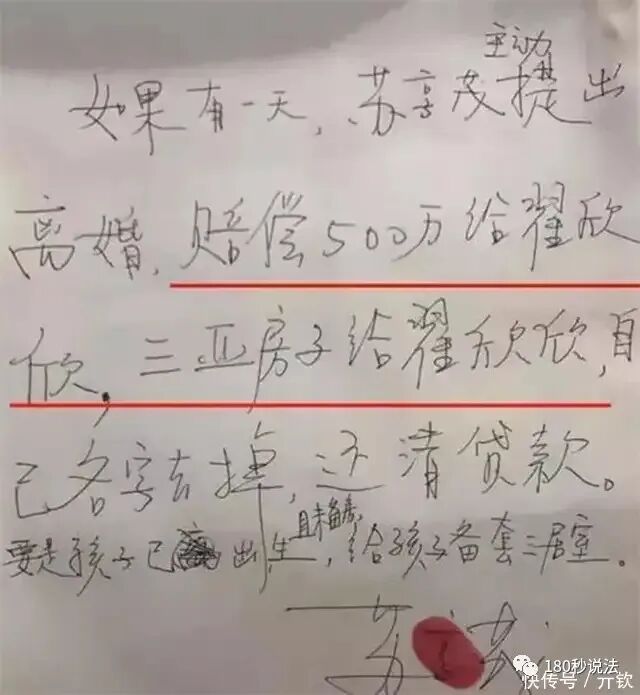 主动
如果有一天,苏享茂提出
离婚,赔偿500万给翟欣
欣,三亚房子给翟欣欣,自
己名字去掉,还清贷款。
且未备房
要是孩子已出生,给孩子备套三居室。
苏
180秒说法
快传号/亓钦